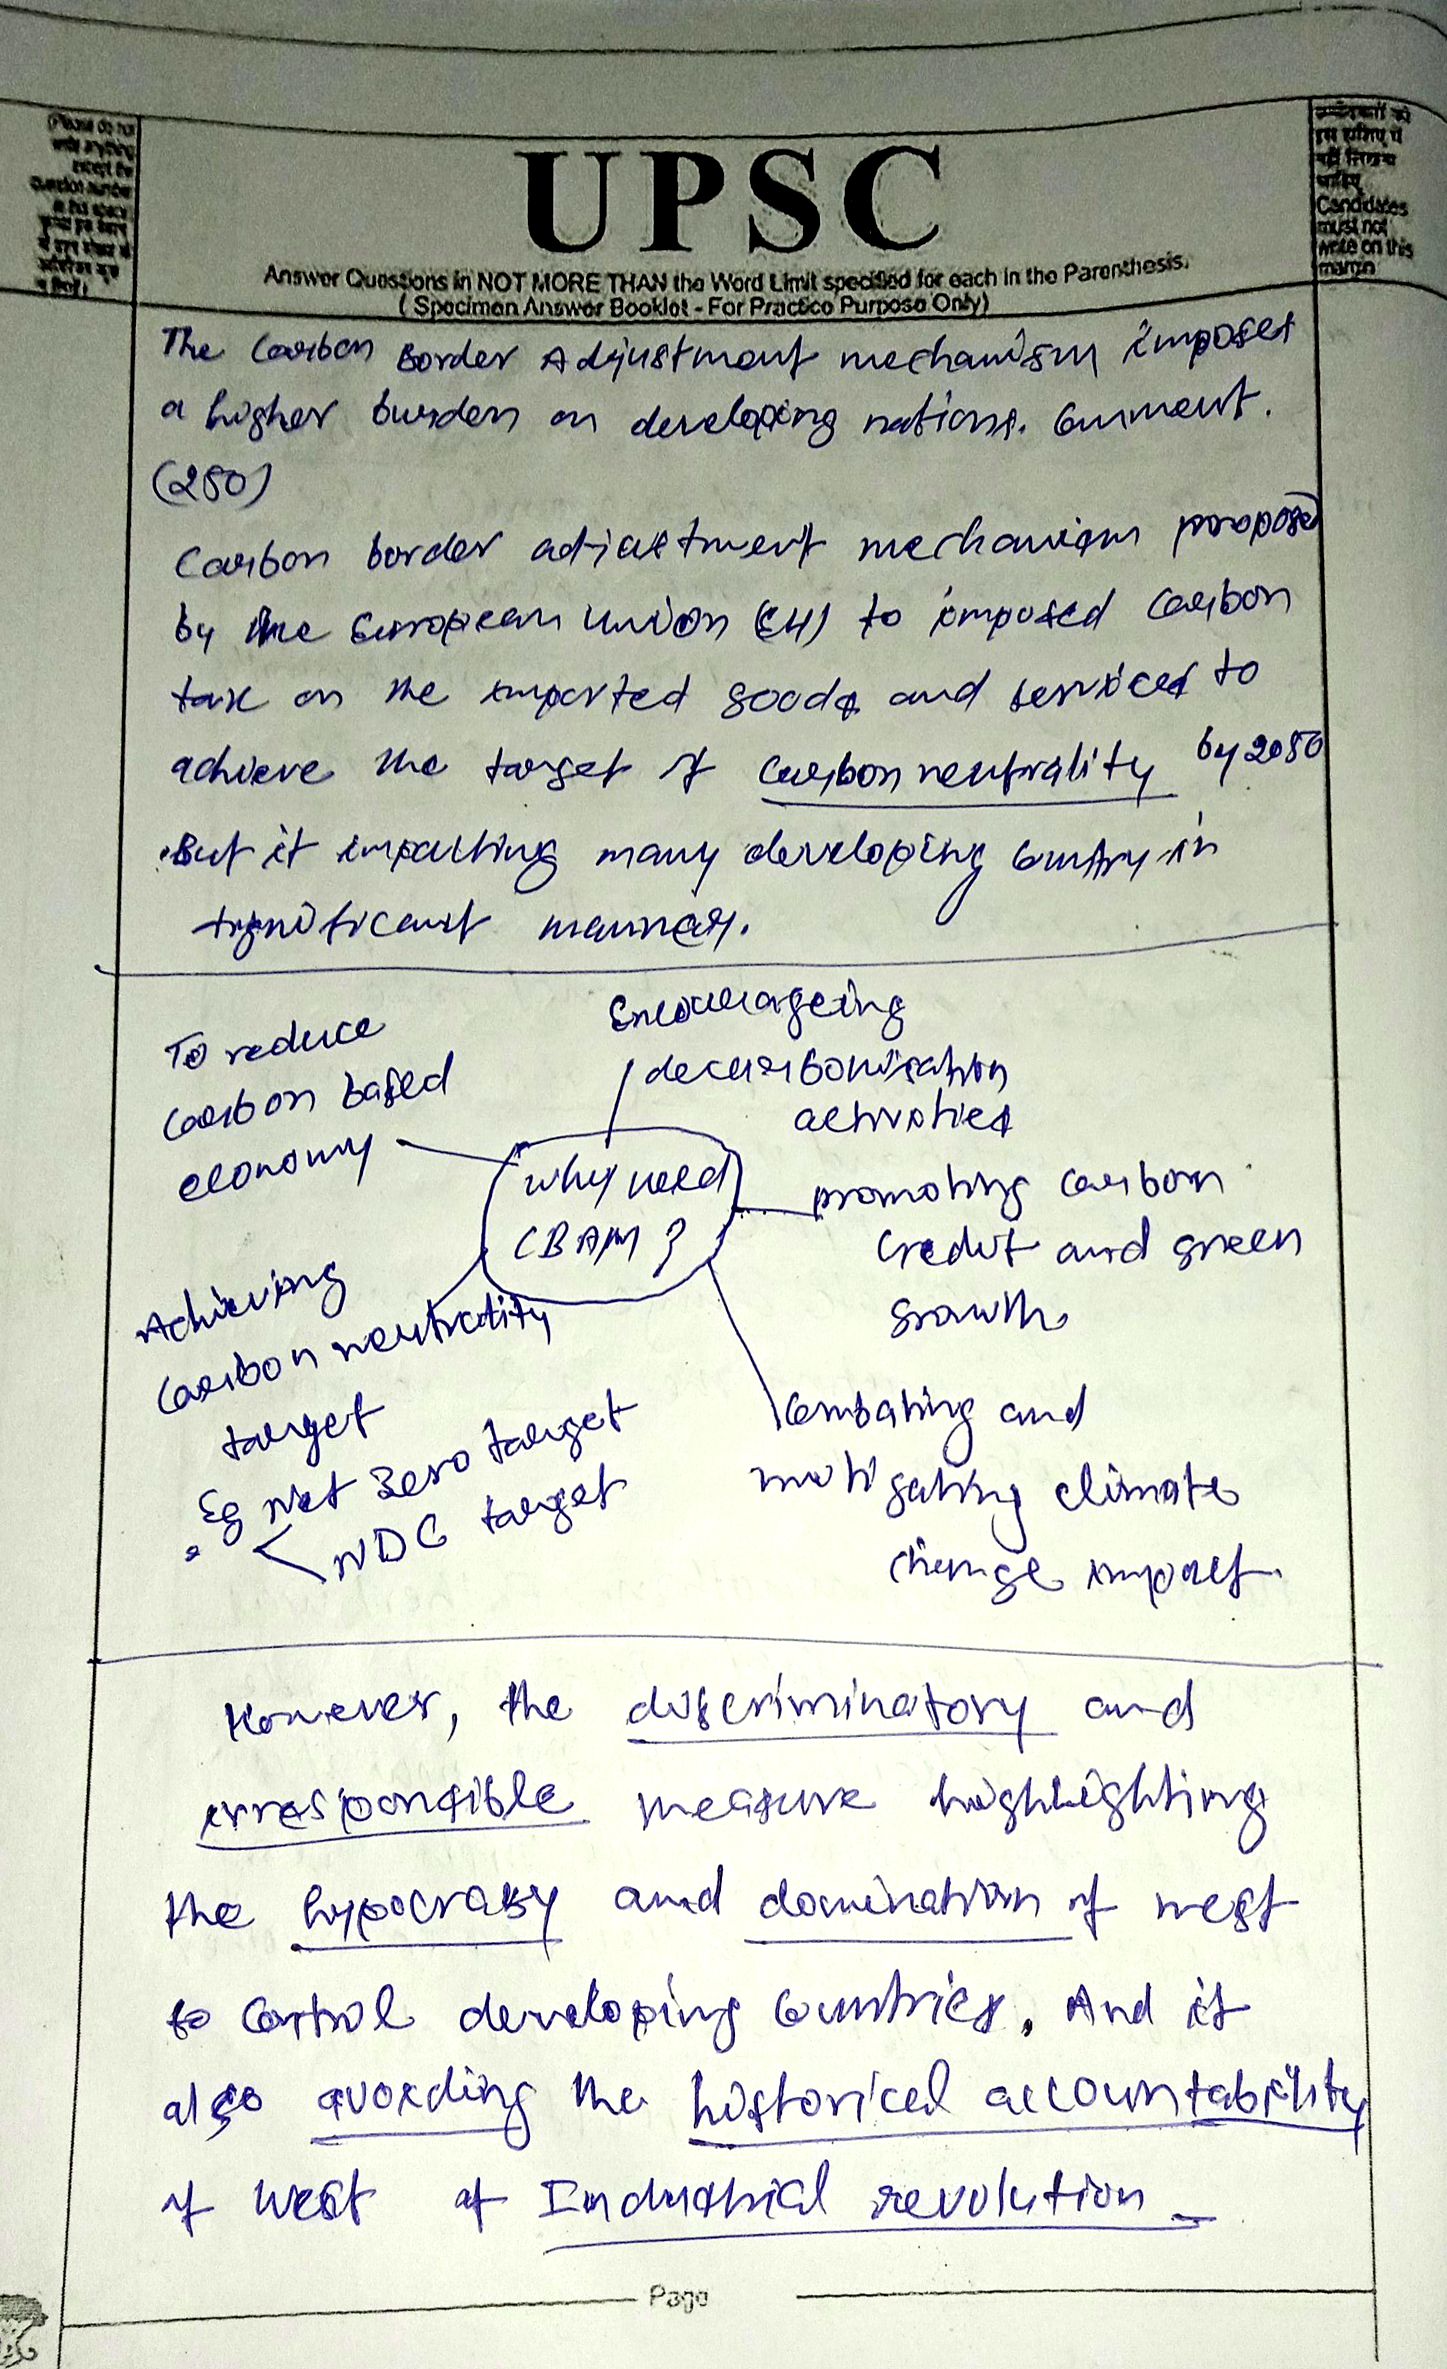 (Please do not
write anything
except the
question number
in this space
UPSC
Answer Questions in NOT MORE THAN the Word Limit specified for each in the Parenthesis.
( Specimen Answer Booklet - For Practice Purpose Only)
Candidates
must not
write on this
margin
The Carbon Border Adjustment mechanism imposes
a higher burden on developing nations. Comment.
(250)
Carbon border adjustment mechanism proposed
by the European Union (EU) to imposed carbon
tax on the imported goods and services to
achieve the target of carbon neutrality by 2050
But it impacting many developing country in
significant manner.
To reduce
carbon based
economy
Encourageing
decarbonisation
activities
why need
CBAM ?
promoting carbon
credit and green
growth
Achieving
carbon neutrality
target
Eg Net Zero target
NDC target
Combating and
mitigating climate
change impact.
However, the discriminatory and
irresponsible measure highlighting
the hypocrasy and domination of west
to control developing countries. And it
also avoiding the historical accountability
of West of Industrial revolution
Page